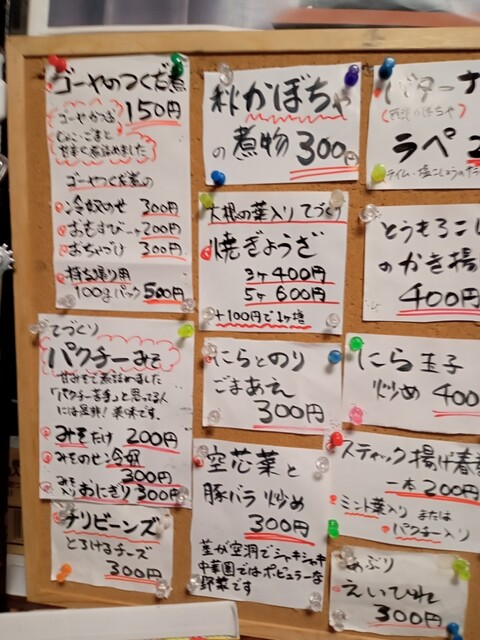 ゴーヤのつくだ煮
150円
ゴーヤかつお
じゃこ・ごまと
甘辛く煮詰めました
ゴーヤつくだ煮の
冷奴のせ 300円
おむすび一ヶ 200円
おちゃづけ 300円
持ち帰り用
100gパック 500円
てづくり
パクチーみそ
甘みそで煮詰めました
「パクチー苦手」と思ってる人
には是非!美味です。
みそだけ 200円
みそのせ冷奴
300円
みそ入りおにぎり 300円
チリビーンズ
とろけるチーズ
300円
秋かぼちゃ
の煮物 300円
大根の葉入り てづくり
焼ぎょうざ
3ヶ 400円
5ヶ 600円
+100円で1ヶ増
にらとのり
ごまあえ
300円
空芯菜と
豚バラ炒め
300円
茎が空洞でシャキシャキ
中華圏ではポピュラーな
野菜です
バターナ
ラペ
タイム・塩こしょうの
とうもろこし
のかき揚
400円
にら玉子
炒め 400
スティック揚げ春巻
一本 200円
ミント葉入り または
パクチー入り
あぶり
えいひれ
300円